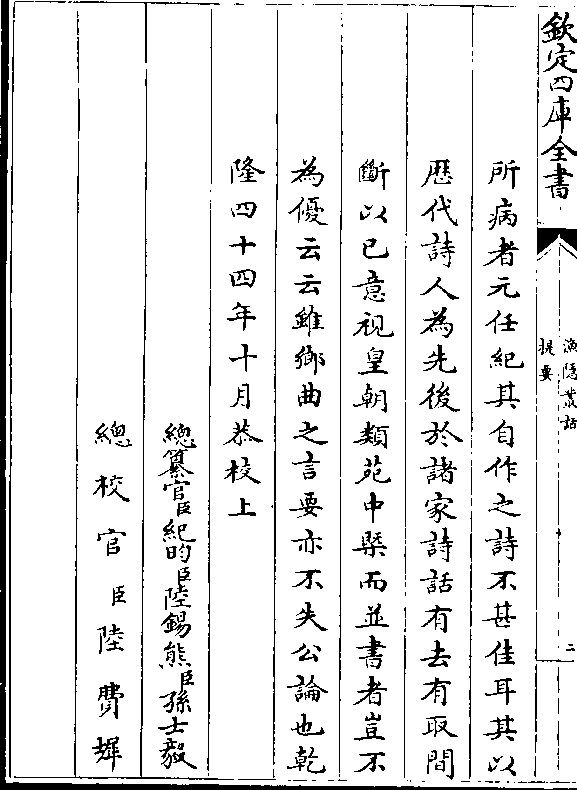 欽定四庫全書
漁隱叢話
提要
二
所病者元任紀其自作之詩不甚佳耳其以
歴代詩人為先後於諸家詩話有去有取間
斷以已意視皇朝類苑中槩而並書者豈不
為優云云雖鄉曲之言要亦不失公論也乾
隆四十四年十月恭校上
總纂官臣紀昀臣陸錫熊臣孫士毅
總校官臣陸費墀